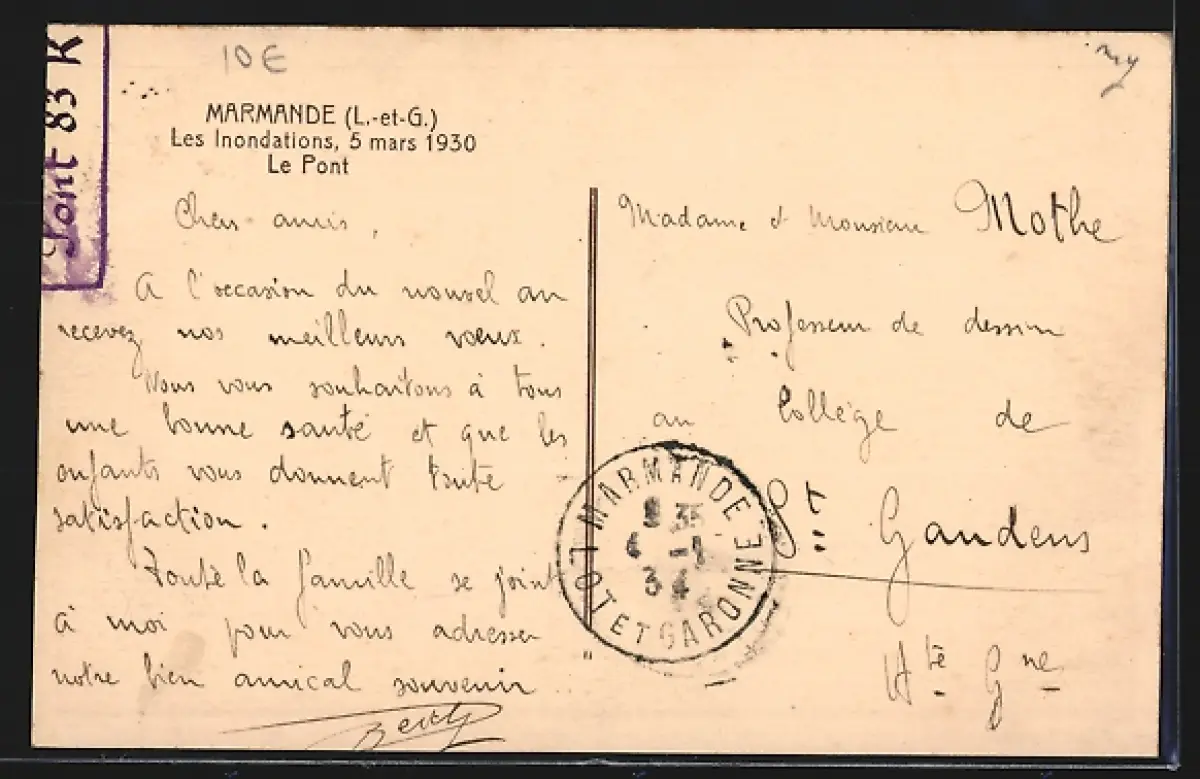 10 €
Pont 83 K
MARMANDE (L.-et-G.)
Les Inondations, 5 mars 1930
Le Pont
Chers amis,
A l'occasion du nouvel an
recevez nos meilleurs vœux.
Nous vous souhaitons à tous
une bonne santé et que les
enfants vous donnent toute
satisfaction.
Toute la famille se joint
à moi pour vous adresser
notre bien amical souvenir
Madame et Monsieur Mothe
Professeur de dessin
au Collège de
St Gaudens
Hte Gne
MARMANDE
LOT ET GARONNE
35
4 -1
34